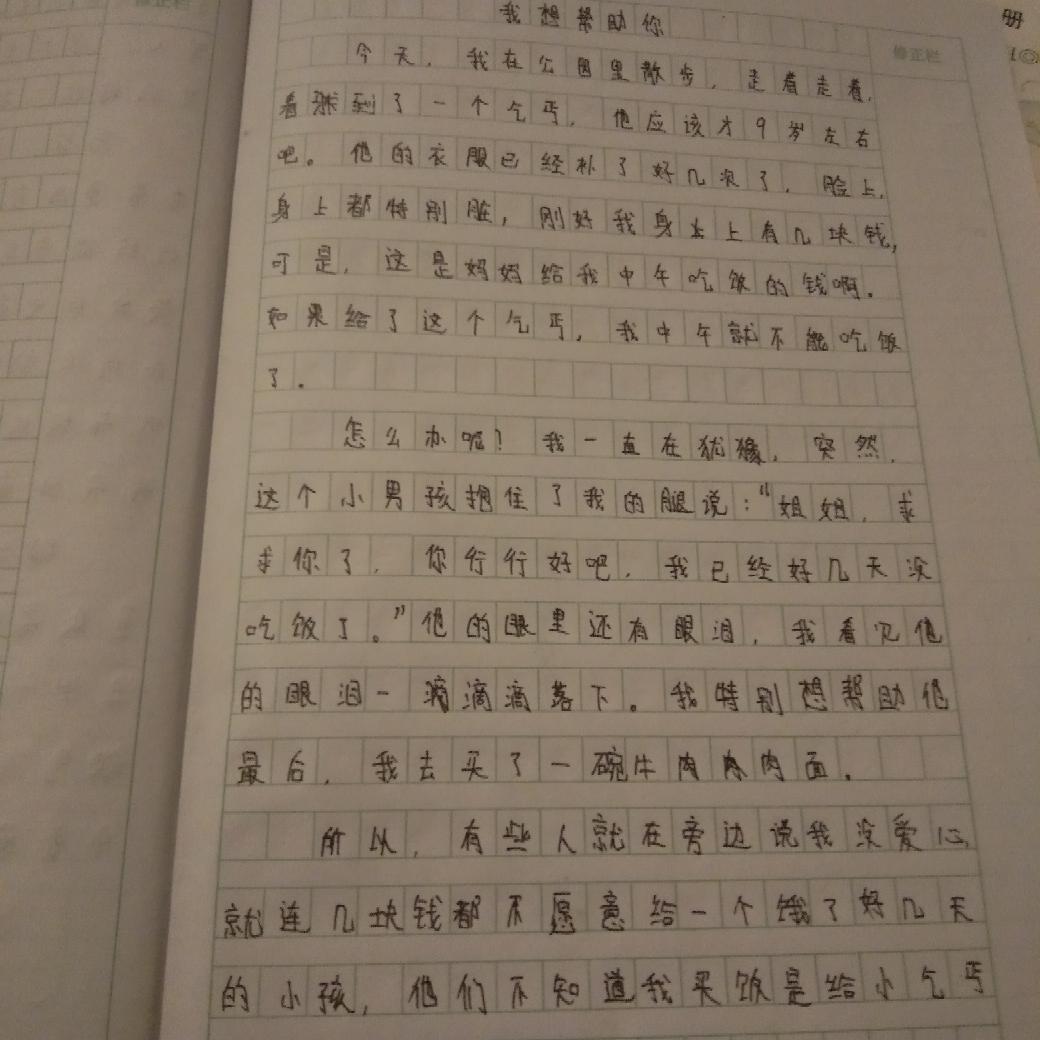 册
修正栏
修正栏
我想帮助你
今天，我在公园里散步，走着走着，
看到了一个乞丐，他应该才9岁左右
吧。他的衣服已经补了好几次了，脸上，
身上都特别脏，刚好我身上有几块钱，
可是，这是妈妈给我中午吃饭的钱啊。
如果给了这个乞丐，我中午就不能吃饭
了。
怎么办呢？我一直在犹豫，突然，
这个小男孩抱住了我的腿说：“姐姐，求
求你了，你行行好吧，我已经好几天没
吃饭了。”他的眼里还有眼泪，我看见他
的眼泪一滴滴滴落下。我特别想帮助他
最后，我去买了一碗牛肉肉面。
所以，有些人就在旁边说我没爱心，
就连几块钱都不愿意给一个饿了好几天
的小孩，他们不知道我买饭是给小乞丐